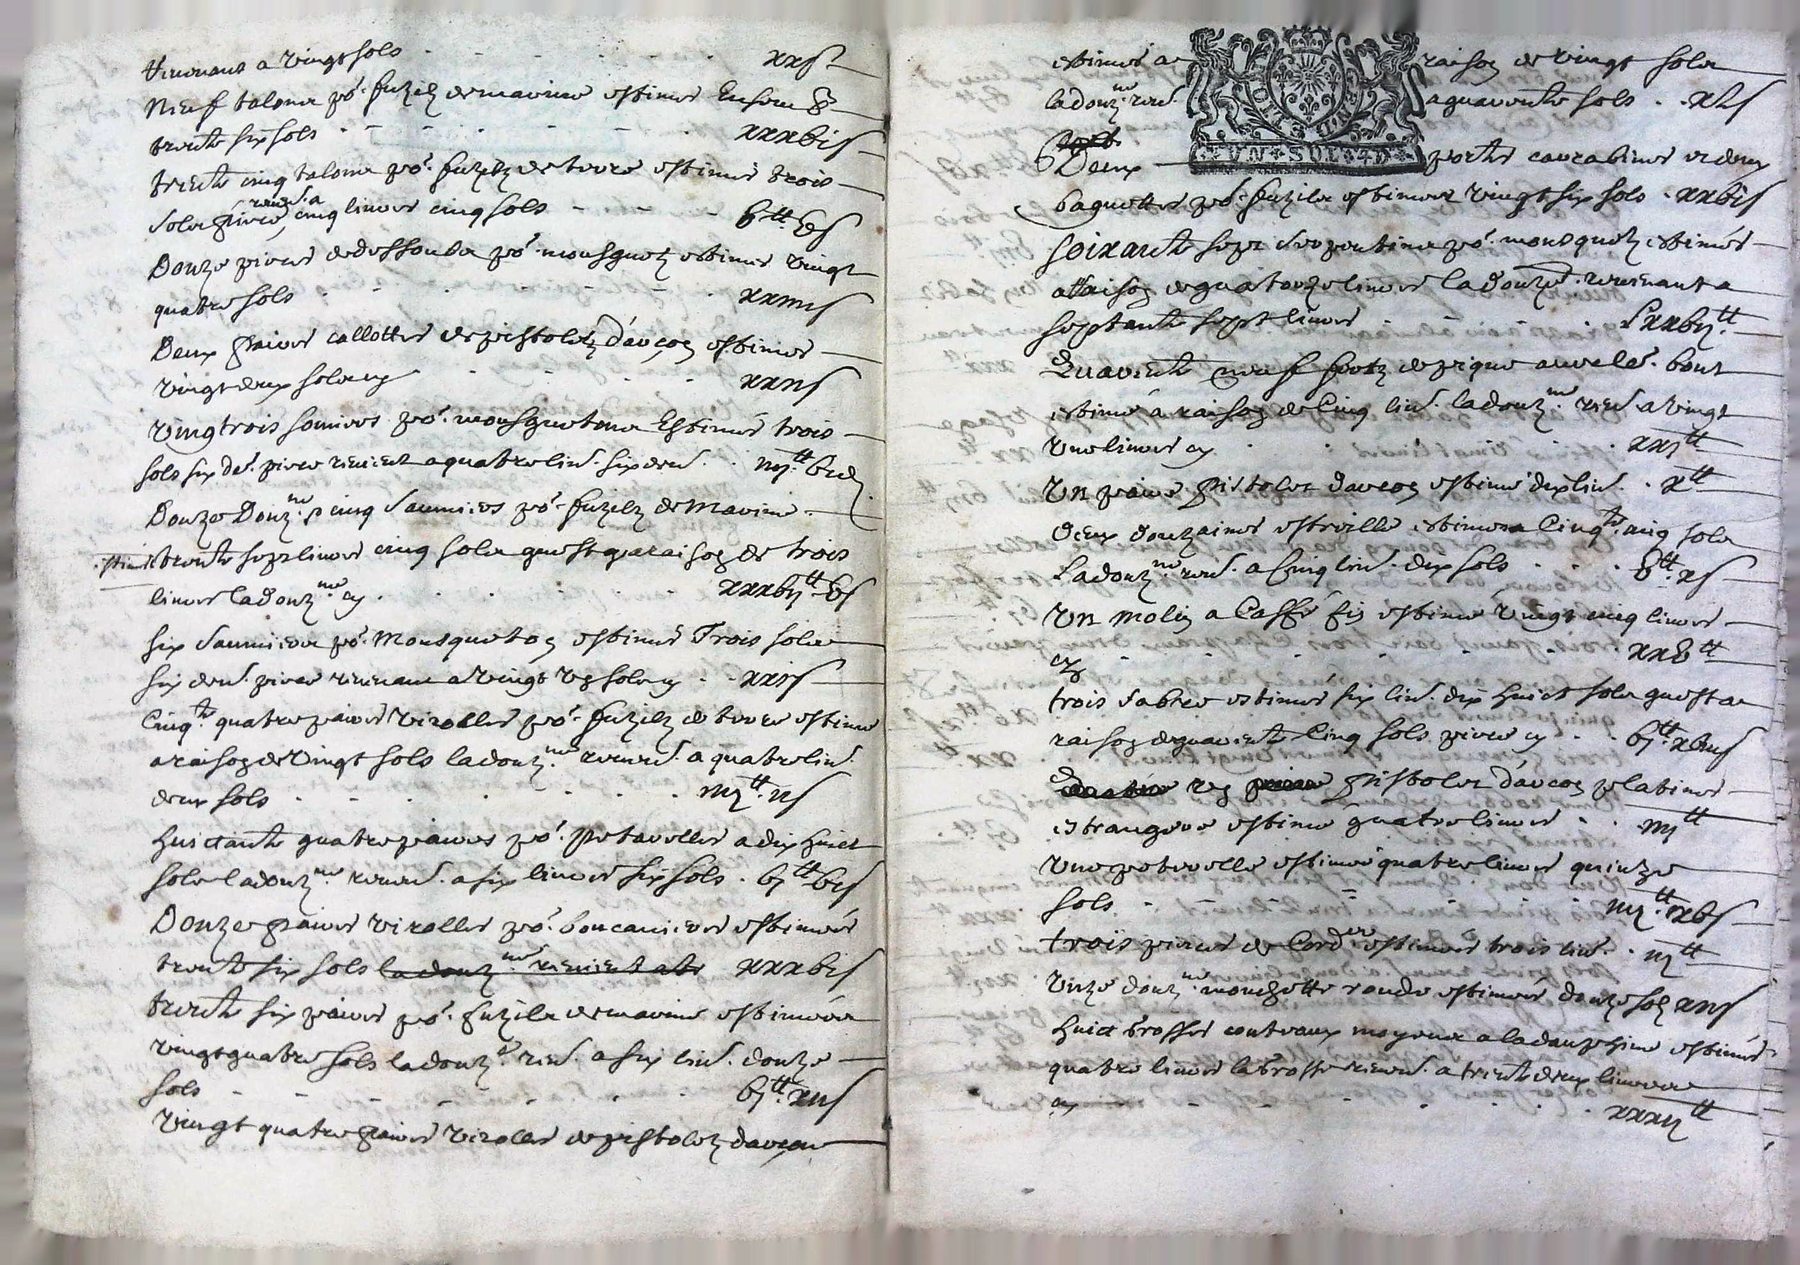 revenans a vingt sols . . . . . xx s
Neuf talons po.r fuzilz de marine estimes Ensem
trente six sols . . . . . xxxvi s
trente cinq talons po.r fuzilz de terre estimes trois
sols piece, reven.t a cinq livres cinq sols . . . v tt v s
Douze pieces de dessoube po.r mousquetz estimes vingt
quatre sols . . . . . xxiiii s
Deux paires callottes de pistoletz d'arçon estimes
vingt deux sols cy . . . . . xxii s
vingt trois sonieres po.r mousquetons Estimés trois
sols six de.r piece revient a quatre liv. six den. . . iiij tt vi d
Douze Douz.ne cinq saunieres po.r fuzilz de Marine
estimes trente sept livres cinq sols quest a raison de trois
livres la douz.ne cy . . . . . xxxvij tt v s
six saunieres po.r Mousqueton estimés Trois sols
six den. piece revenant a vingt ug sols cy . . xxi s
Cinq.te quatre paires virolles po.r fuzilz de terre estimes
a raison de vingt sols la douz.ne reven. a quatre liv.
deux sols . . . . . iiij tt ii s
huictante quatre paires po.r petarolles a dix huict
sols la douz.ne reven. a six livres six sols . vj tt vi s
Douze paires virolles po.r boucanieres estimées
trente six sols la douz.ne revient a xxxvi s
trente six paires po.r fuzils de marine estimées
vingt quatre sols la douz.e rev. a six liv. douze
sols . . . . . vj tt xii s
vingt quatre paires viroles de pistoletz darçon
estimes a raison de vingt sols
la douz.ne reven. a quarente sols . . xl s
VN SOL 4 D
Deux porte carabines et deux
baguettes po.r fuzils estimes vingt six sols . xxvi s
soixante sept serpentins po.r mousquetz estimés
a raison de quatorze livres la douz.e revenant a
septante sept livres . . . . . Lxxvij tt
Quarente neuf fertz de pique avec le bout
estimé a raison de Cinq liv. la douz.ne reven. a vingt
une livres cy . . . . xxj tt
Un paire pistolet darçon estimé dix liv. . x tt
deux douzaines estrille estimes a Cinq.te cinq sols
La douz.ne reven. a Cinq liv. dix sols . . . v tt x s
Un molin a Caffé fin estimé vingt cinq livres
cy . . . . . xxv tt
trois sabres estimés six liv. dix huict sols quest a
raison de quarente Cinq sols piece cy . . vj tt xviii s
ug pistolet d'arçon platines
estrangere estimé quatre livres . . iiij tt
Une peterolle estimée quatre livres quinze
sols . . . . . iiij tt xv s
trois pieces de Cord.er estimées trois liv. . iij tt
Unze douz.ne mouchette ronde estimées douze solz xii s
huict brosses couteaux moyens a la dauphine estimés
quatre livres la brosse reven. a trente deux livres
cy . . . . . xxxij tt